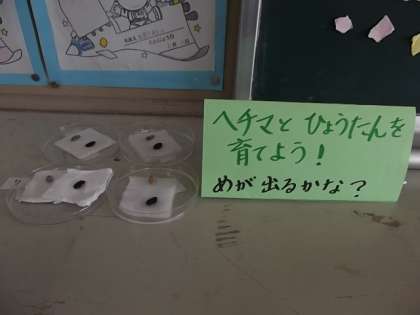 ヘチマと ひょうたんを
育てよう!
めが 出るかな?